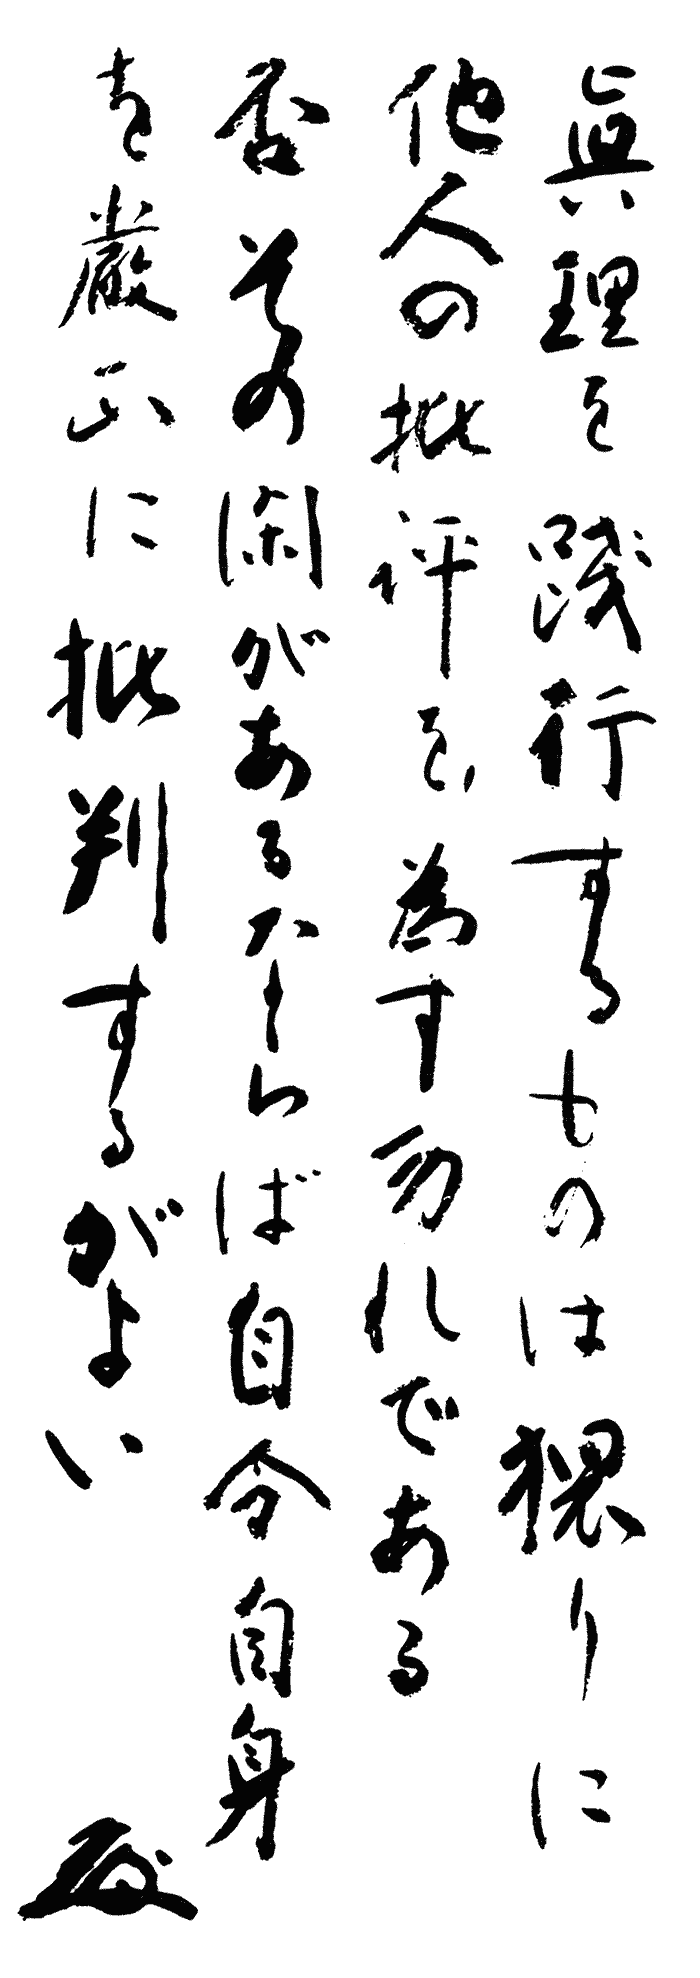 眞理を践行するものは猥りに
他人の批評を為す勿れである
否その閑があるならば自分自身
を嚴正に批判するがよい